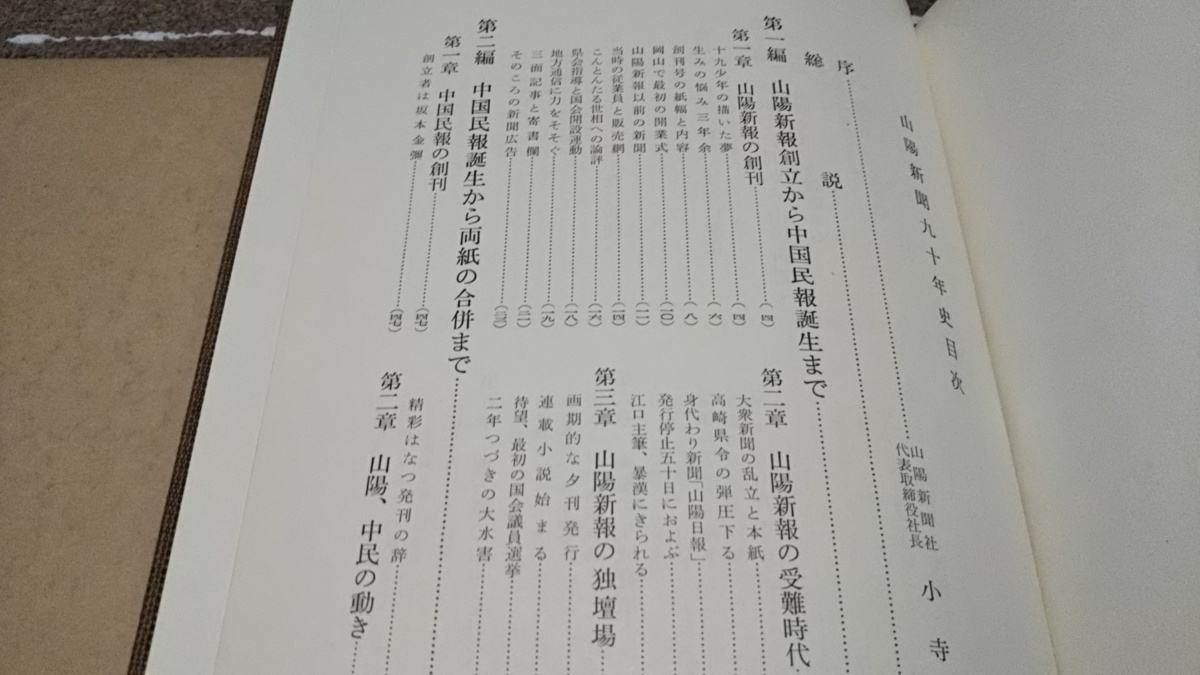 山陽新聞九十年史目次
山陽新聞社
代表取締役社長
小寺
序
総説
第一編 山陽新報創立から中国民報誕生まで
第一章 山陽新報の創刊 (四)
十九少年の描いた夢 (四)
生みの悩み三年余 (六)
創刊号の紙幅と内容 (八)
岡山で最初の開業式 (一〇)
山陽新報以前の新聞 (一一)
当時の従業員と販売網 (一四)
こんとんたる世相への論評 (一六)
県会指導と国会開設運動 (一八)
地方通信に力をそそぐ (一九)
三面記事と寄書欄 (二一)
そのころの新聞広告
第二章 山陽新報の受難時代
大衆新聞の乱立と本紙
高崎県令の弾圧下る
身代わり新聞「山陽日報」
発行停止五十日におよぶ
江口主筆、暴漢にきられる
第三章 山陽新報の独壇場
画期的な夕刊発行
連載小説始まる
待望、最初の国会議員選挙
二年つづきの大水害
第二編 中国民報誕生から両紙の合併まで
第一章 中国民報の創刊 (四七)
創立者は坂本金彌 (四七)
精彩はなつ発刊の辞
第二章 山陽、中民の動き